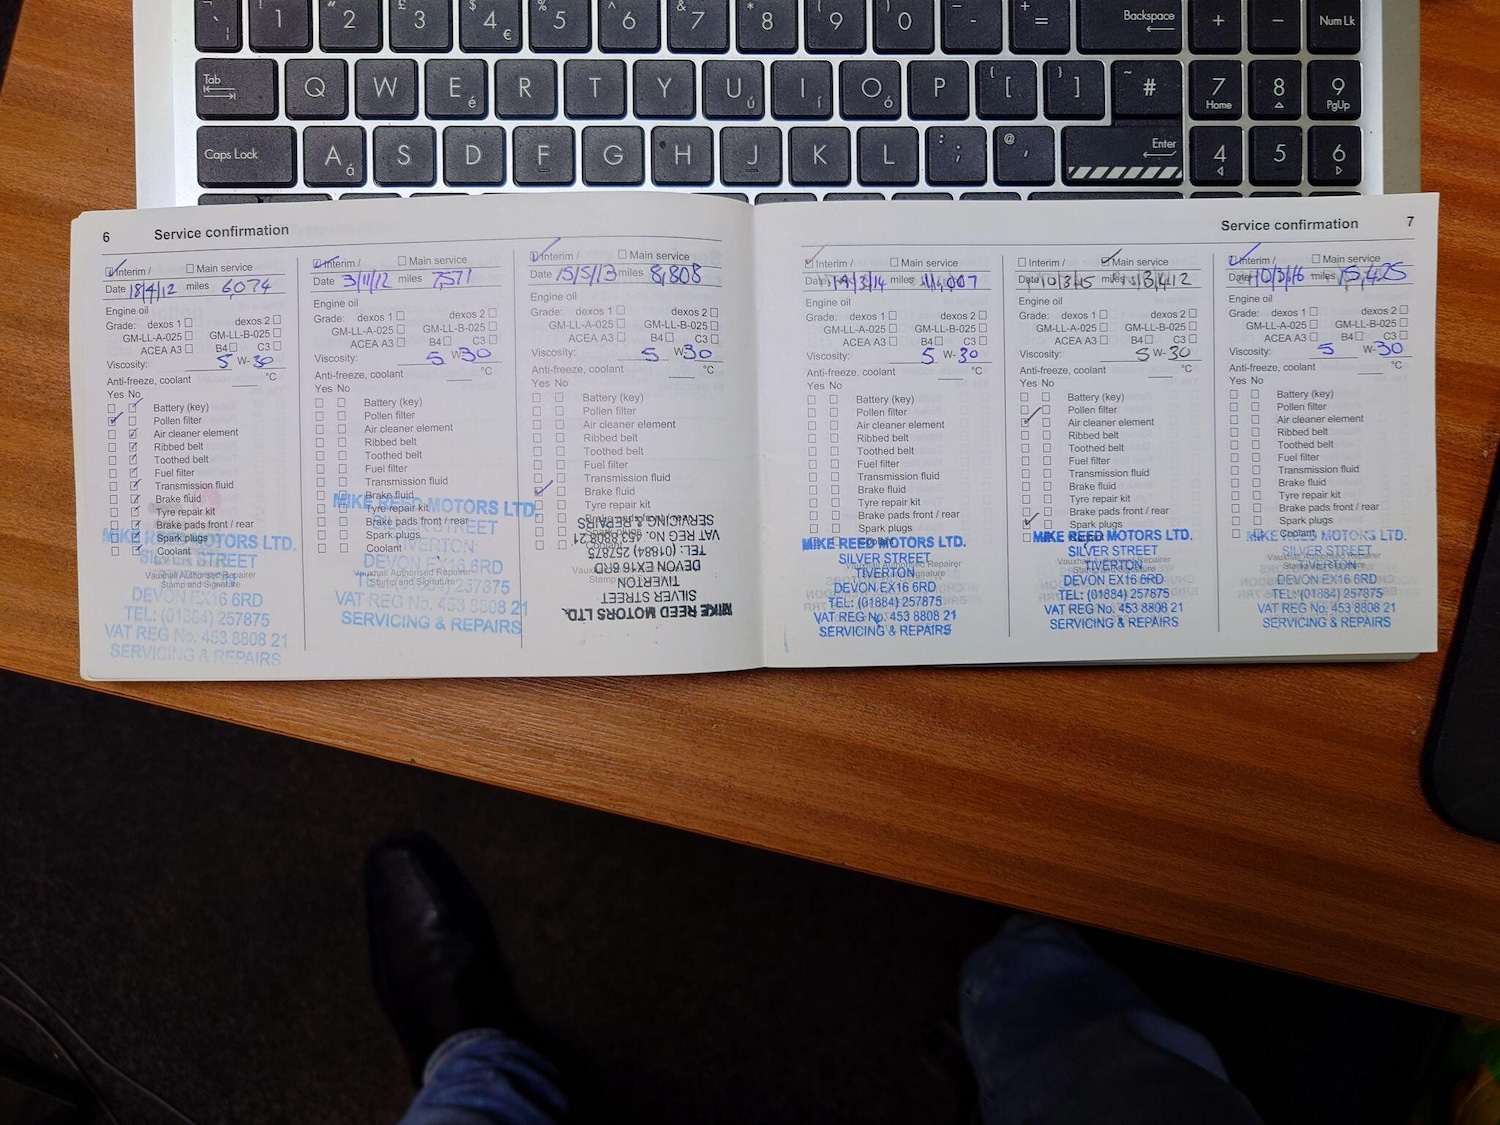 ` ¦ ! 1 " 2 £ 3 $ 4 € % 5 ^ 6 & 7 * 8 ( 9 ) 0 _ - + = Backspace + - Num Lk
Tab Q W E é R T Y U ú I í O ó P { [ } ] ~ # 7 Home 8 9 PgUp
Caps Lock A á S D F G H J K L : ; @ ' Enter 4 5 6
6 Service confirmation
Interim / Main service
Date 18/4/12 miles 6,074
Engine oil
Grade: dexos 1 dexos 2
GM-LL-A-025 GM-LL-B-025
ACEA A3 B4 C3
Viscosity: 5 W-30
Anti-freeze, coolant °C
Yes No
Battery (key)
Pollen filter
Air cleaner element
Ribbed belt
Toothed belt
Fuel filter
Transmission fluid
Brake fluid
Tyre repair kit
Brake pads front / rear
Spark plugs
Coolant
Vauxhall Authorised Repairer
Stamp and Signature
MIKE REED MOTORS LTD.
SILVER STREET
DEVON EX16 6RD
TEL: (01884) 257875
VAT REG No. 453 8808 21
SERVICING & REPAIRS
Interim / Main service
Date 3/11/12 miles 7,571
Engine oil
Grade: dexos 1 dexos 2
GM-LL-A-025 GM-LL-B-025
ACEA A3 B4 C3
Viscosity: 5 W-30
Anti-freeze, coolant °C
Yes No
Battery (key)
Pollen filter
Air cleaner element
Ribbed belt
Toothed belt
Fuel filter
Transmission fluid
Brake fluid
Tyre repair kit
Brake pads front / rear
Spark plugs
Coolant
Vauxhall Authorised Repairer
Stamp and Signature
MIKE REED MOTORS LTD.
SILVER STREET
TIVERTON
DEVON EX16 6RD
TEL: (01884) 257875
VAT REG No. 453 8808 21
SERVICING & REPAIRS
Interim / Main service
Date 15/5/13 miles 8,808
Engine oil
Grade: dexos 1 dexos 2
GM-LL-A-025 GM-LL-B-025
ACEA A3 B4 C3
Viscosity: 5 W30
Anti-freeze, coolant °C
Yes No
Battery (key)
Pollen filter
Air cleaner element
Ribbed belt
Toothed belt
Fuel filter
Transmission fluid
Brake fluid
Tyre repair kit
MIKE REED MOTORS LTD.
SILVER STREET
TIVERTON
DEVON EX16 6RD
TEL: (01884) 257875
VAT REG No. 453 8808 21
SERVICING & REPAIRS
Service confirmation 7
Interim / Main service
Date 19/3/14 miles 11,007
Engine oil
Grade: dexos 1 dexos 2
GM-LL-A-025 GM-LL-B-025
ACEA A3 B4 C3
Viscosity: 5 W-30
Anti-freeze, coolant °C
Yes No
Battery (key)
Pollen filter
Air cleaner element
Ribbed belt
Toothed belt
Fuel filter
Transmission fluid
Brake fluid
Tyre repair kit
Brake pads front / rear
Spark plugs
MIKE REED MOTORS LTD.
SILVER STREET
TIVERTON
DEVON EX16 6RD
TEL: (01884) 257875
VAT REG No. 453 8808 21
SERVICING & REPAIRS
Interim / Main service
Date 10/3/15 miles 13,412
Engine oil
Grade: dexos 1 dexos 2
GM-LL-A-025 GM-LL-B-025
ACEA A3 B4 C3
Viscosity: 5 W-30
Anti-freeze, coolant °C
Yes No
Battery (key)
Pollen filter
Air cleaner element
Ribbed belt
Toothed belt
Fuel filter
Transmission fluid
Brake fluid
Tyre repair kit
Brake pads front / rear
Spark plugs
MIKE REED MOTORS LTD.
SILVER STREET
TIVERTON
DEVON EX16 6RD
TEL: (01884) 257875
VAT REG No. 453 8808 21
SERVICING & REPAIRS
Interim / Main service
Date 10/3/16 miles 15,425
Engine oil
Grade: dexos 1 dexos 2
GM-LL-A-025 GM-LL-B-025
ACEA A3 B4 C3
Viscosity: 5 W-30
Anti-freeze, coolant °C
Yes No
Battery (key)
Pollen filter
Air cleaner element
Ribbed belt
Toothed belt
Fuel filter
Transmission fluid
Brake fluid
Tyre repair kit
Brake pads front / rear
Spark plugs
Coolant
MIKE REED MOTORS LTD.
SILVER STREET
TIVERTON
DEVON EX16 6RD
TEL: (01884) 257875
VAT REG No. 453 8808 21
SERVICING & REPAIRS